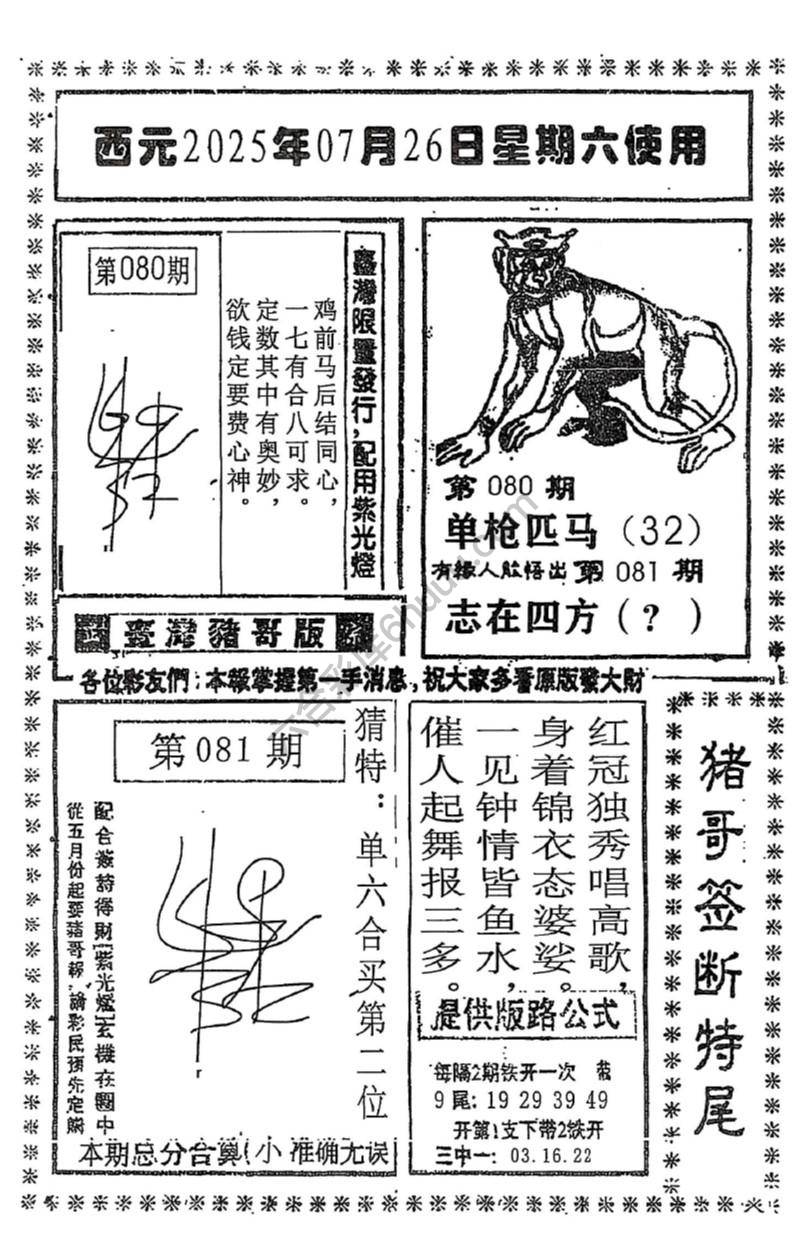 西元2025年07月26日星期六使用
第080期
臺灣限量發行，配用紫光燈
鸡前马后结同心，
一七有合八可求。
定数其中有奥妙，
欲钱定要费心神。
臺灣豬哥版
第 080 期
单枪匹马（32）
有緣人能悟出 第 081 期
志在四方（？）
各位彩友們：本報掌握第一手消息，祝大家多看原版發大財
第081期
猜特：单六合买第二位
配合籤詩得財紫光燈玄機在圖中
從五月份起要豬哥報，請彩民預先定購
本期总分合算（小 准确无误
红冠独秀唱高歌，
身着锦衣态婆娑。
一见钟情皆鱼水，
催人起舞报三多。
提供版路公式
每隔2期铁开一次
9尾：19 29 39 49
开第1支下带2铁开
三中一：03.16.22
猪哥签断特尾
六合彩库6huu.com